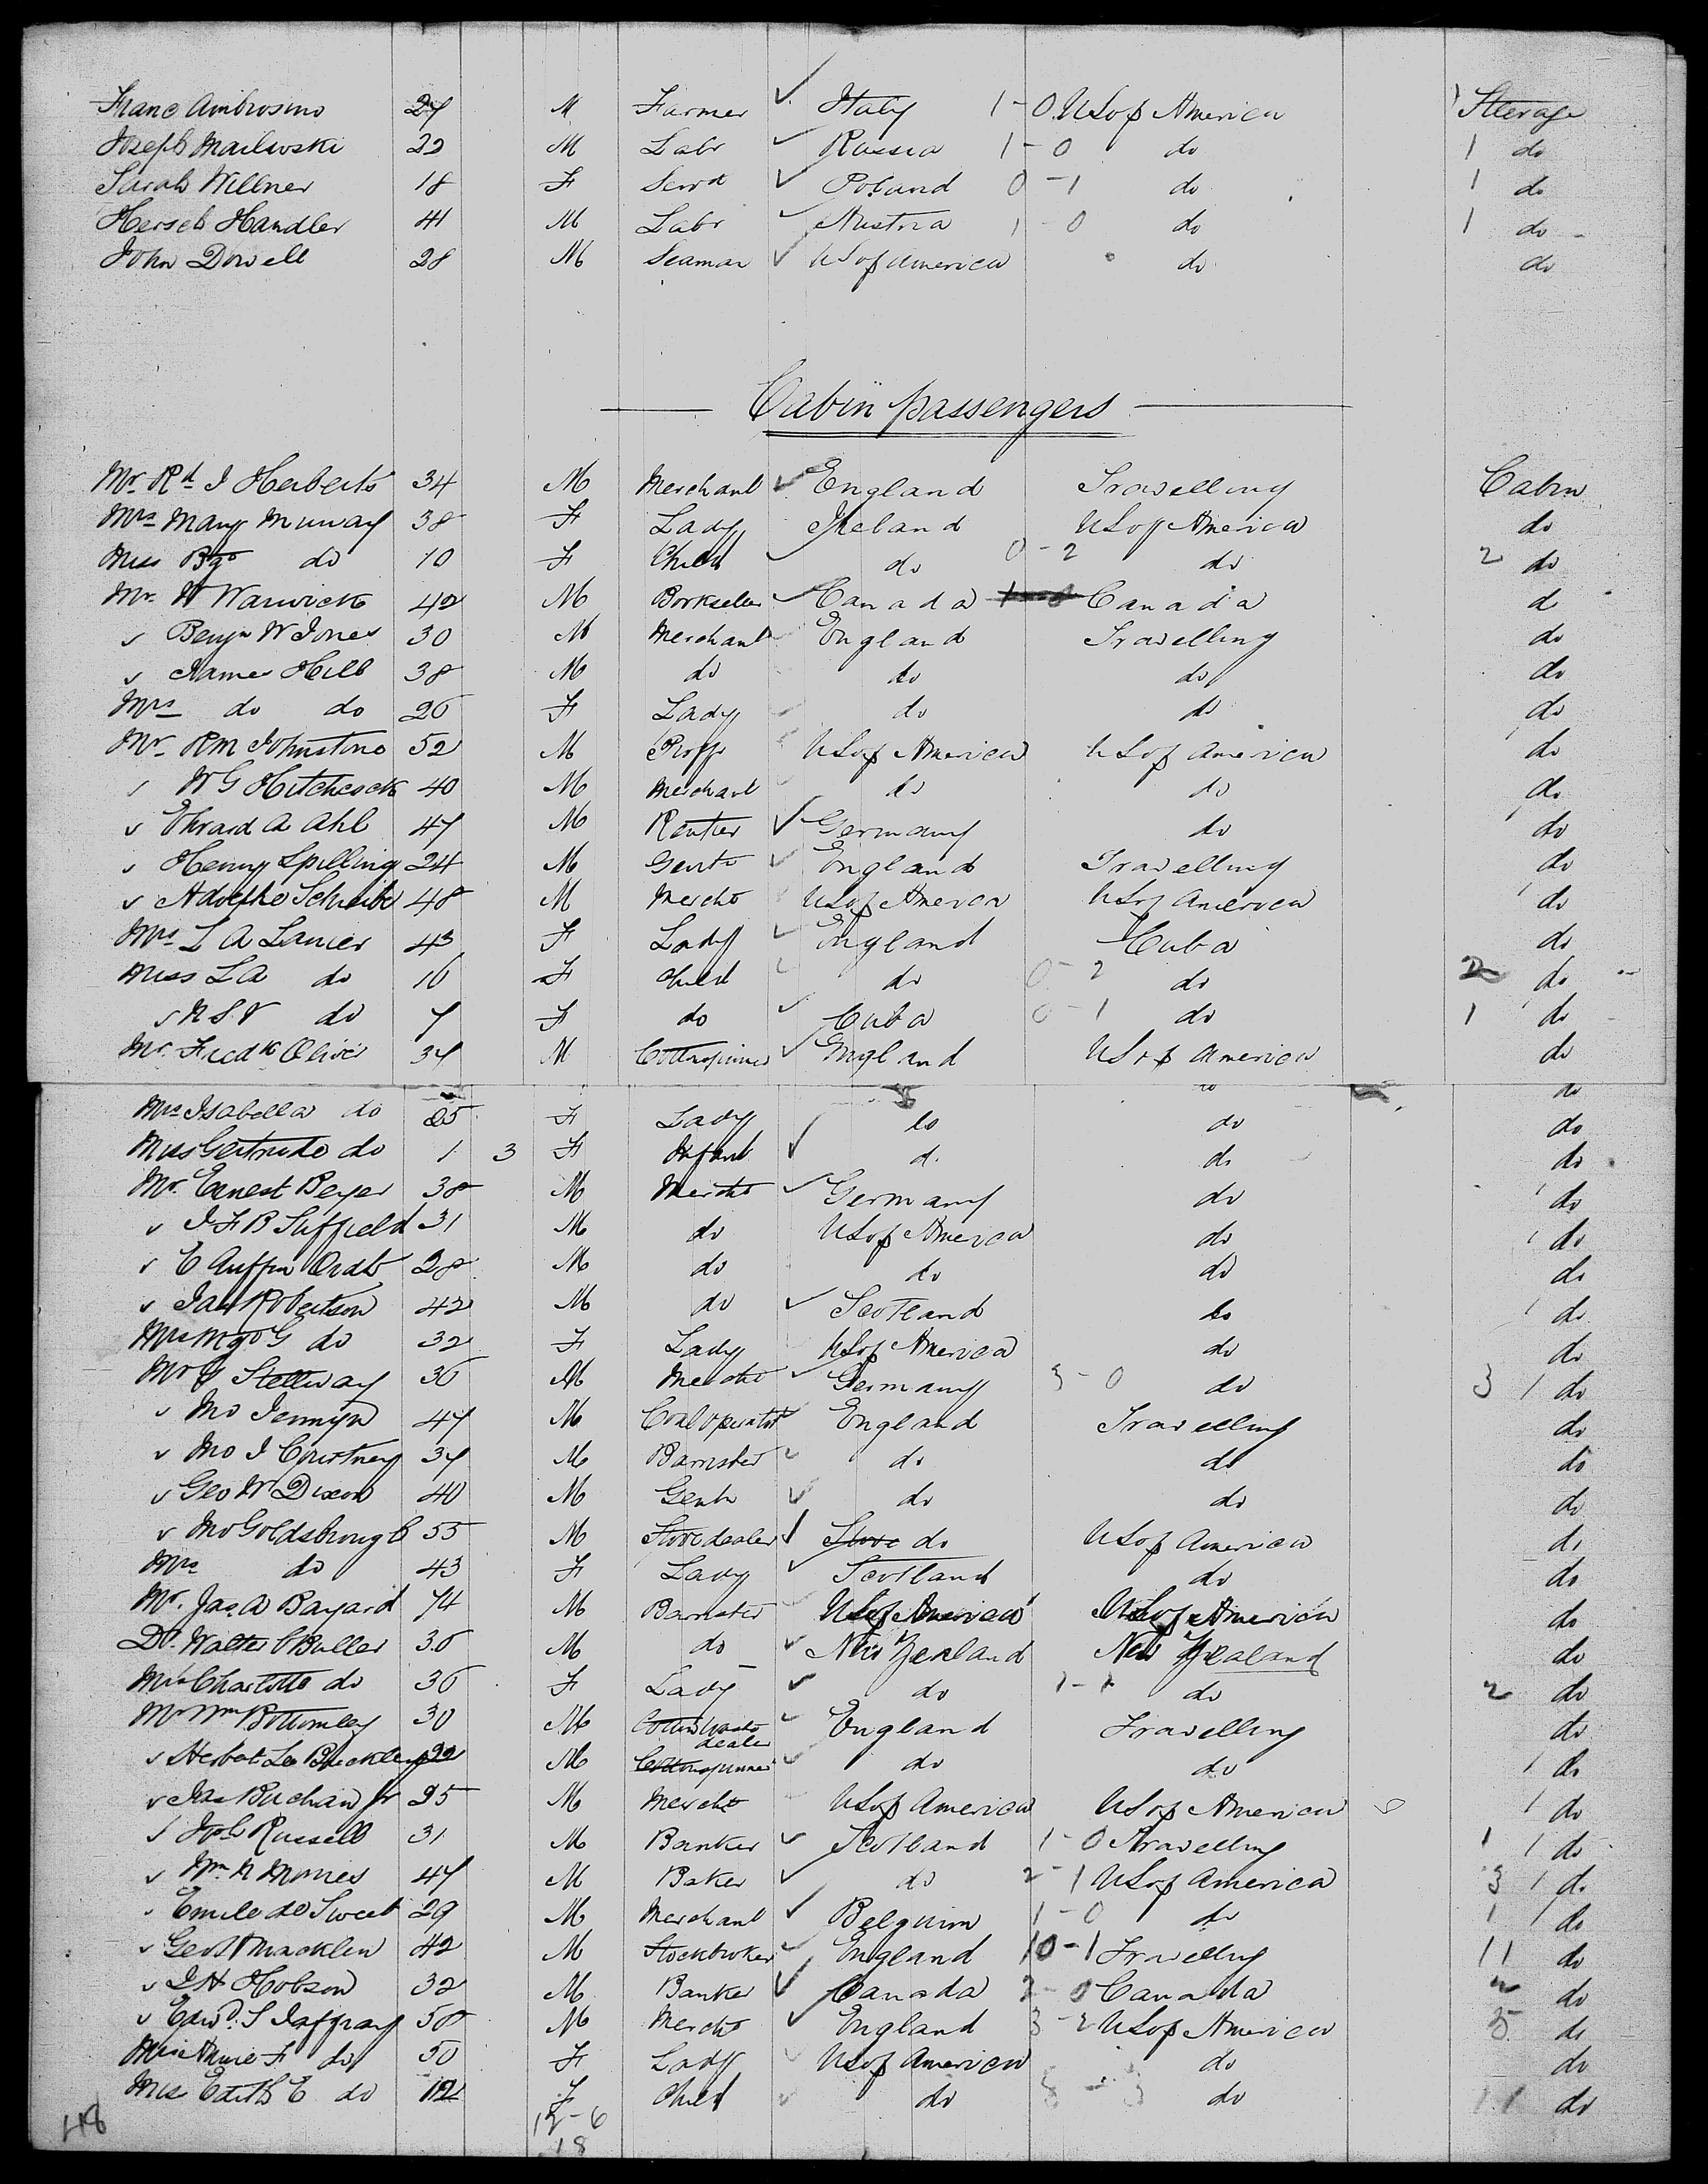 Franc Ambrosino 27 M Farmer ✓ Italy 1-0 US of America Steerage
Joseph Mailewski 22 M Labr ✓ Russia 1-0 do 1 do
Sarah Willner 18 F Servt ✓ Poland 0-1 do 1 do
Hersch Handler 41 M Labr ✓ Austria 1-0 do 1 do
John Dowell 28 M Seaman ✓ US of America do do
Cabin passengers
Mr Rd J Herberts 34 M Merchant ✓ England Travelling Cabin
Mrs Mary Murray 38 F Lady Ireland US of America do
Miss Bgt do 10 F Child ✓ do 0-2 do 2 do
Mr W Warwick 42 M Bookseller ✓ Canada Canada d
✓ Benjn W Jones 30 M Merchant England Travelling do
✓ James Hill 38 M do do do do
Mrs do do 26 F Lady do do do
Mr RM Johnstone 52 M Proff US of America US of America do
✓ W G Hitchcock 40 M Merchant do do do
✓ Ehrard A Ahl 47 M Rentier ✓ Germany do do
✓ Henry Spilling 24 M Gent ✓ England Travelling do
✓ Adolphe 48 M Mercht US of America US of America do
Mrs L A Lanier 43 F Lady ✓ England Cuba do
Miss LA do 10 F Child ✓ do 0-2 do 2 do
✓ do 7 F do ✓ Cuba 0-1 do 1 do
Mr Fredk Oliver 37 M Cottonspinner ✓ England US of America do
Mrs Isabella do 25 F Lady do do do
Miss Gertrude do 1 3 F Infant ✓ do do do
Mr Ernest Beyer 38 M Mercht ✓ Germany do do
✓ J F B Suffield 31 M do US of America do do
✓ C 28 M do do do do
✓ Jas Robertson 42 M do ✓ Scotland do do
Mrs Mgt G do 32 F Lady US of America do do
Mr Stellway 36 M Mercht ✓ Germany 3-0 do 3 do
✓ Jno Jermyn 47 M Coal operator England Travelling do
✓ Jno J Courtney 37 M Barrister ✓ do do do
✓ Geo W Dixon 40 M Gent ✓ do do do
✓ Jno Goldsbrough 55 M Stove dealer ✓ Stove do US of America do
Mrs do 43 F Lady ✓ Scotland do do
Mr. Jas. A Bayard 74 M Barrister US of America US of America do
Dr. Walter C Buller 36 M do ✓ New Zealand New Zealand do
Mrs Charlotte do 36 F Lady ✓ do 1-1 do 2 do
Mr Wm Bottomley 30 M Cotton waste dealer ✓ England Travelling do
✓ Herbert Lee Buckley 22 M Cottonspinner ✓ do do do
✓ Jas Buchan Jr 25 M Mercht US of America US of America do
✓ Jph Russell 31 M Banker ✓ Scotland 1-0 Travelling 1 do
✓ Wm N Monies 47 M Baker ✓ do 2-1 US of America 3 do
Emile de Sweet 29 M Merchant ✓ Belguim 1-0 do 1 do
✓ Macklin 42 M Stockbroker ✓ England 10-1 Travellng 11 do
✓ J H Hobson 32 M Banker ✓ Canada 2-0 Canada 2 do
✓ Edwd. S Jaffray 58 M Mercht ✓ England 3-2 US of America 5 do
Mrs Annie F do 50 F Lady ✓ US of America do do
Miss Edith E do 12 F Child ✓ do do do
12-6
18
418